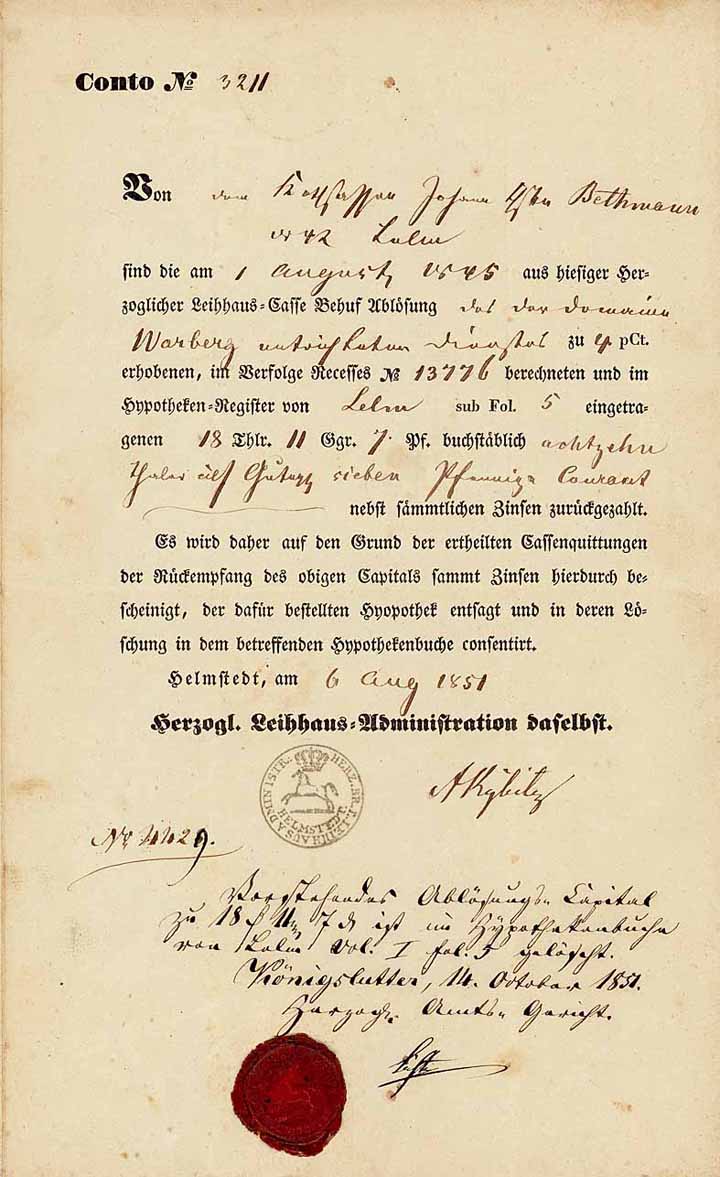 Conto № 3211
Von dem Kothsassen Johann Bethmann
Lelm
sind die am 1 August 1845 aus hiesiger Her-
zoglicher Leihhaus-Casse Behuf Ablösung des der Domaine
Warberg entrichteten Dienstes zu 4 pCt.
erhobenen, im Verfolge Recesses № 13776 berechneten und im
Hypotheken-Register von Lelm sub Fol. 5 eingetra-
genen 18 Thlr. 11 Ggr. 7 Pf. buchstäblich achtzehn
Thaler eilf Gutegr sieben Pfennige Courant
nebst sämmtlichen Zinsen zurückgezahlt.
Es wird daher auf den Grund der ertheilten Cassenquittungen
der Rückempfang des obigen Capitals sammt Zinsen hierdurch be-
scheinigt, der dafür bestellten Hyopothek entsagt und in deren Lö-
schung in dem betreffenden Hypothekenbuche consentirt.
Helmstedt, am 6 Aug 1851
Herzogl. Leihhaus-Administration daselbst.
HERZ. BR. L. LEIHHAUS ADMINISTR. HELMSTEDT.
No 4429.
Vorstehendes Ablösungs-Capital
zu 18 11 7 ist im Hypothekenbuche
von Lelm Vol. I fol. 5 gelöscht.
Königslutter, 14. October 1851.
Herzogl. Amts-Gericht.